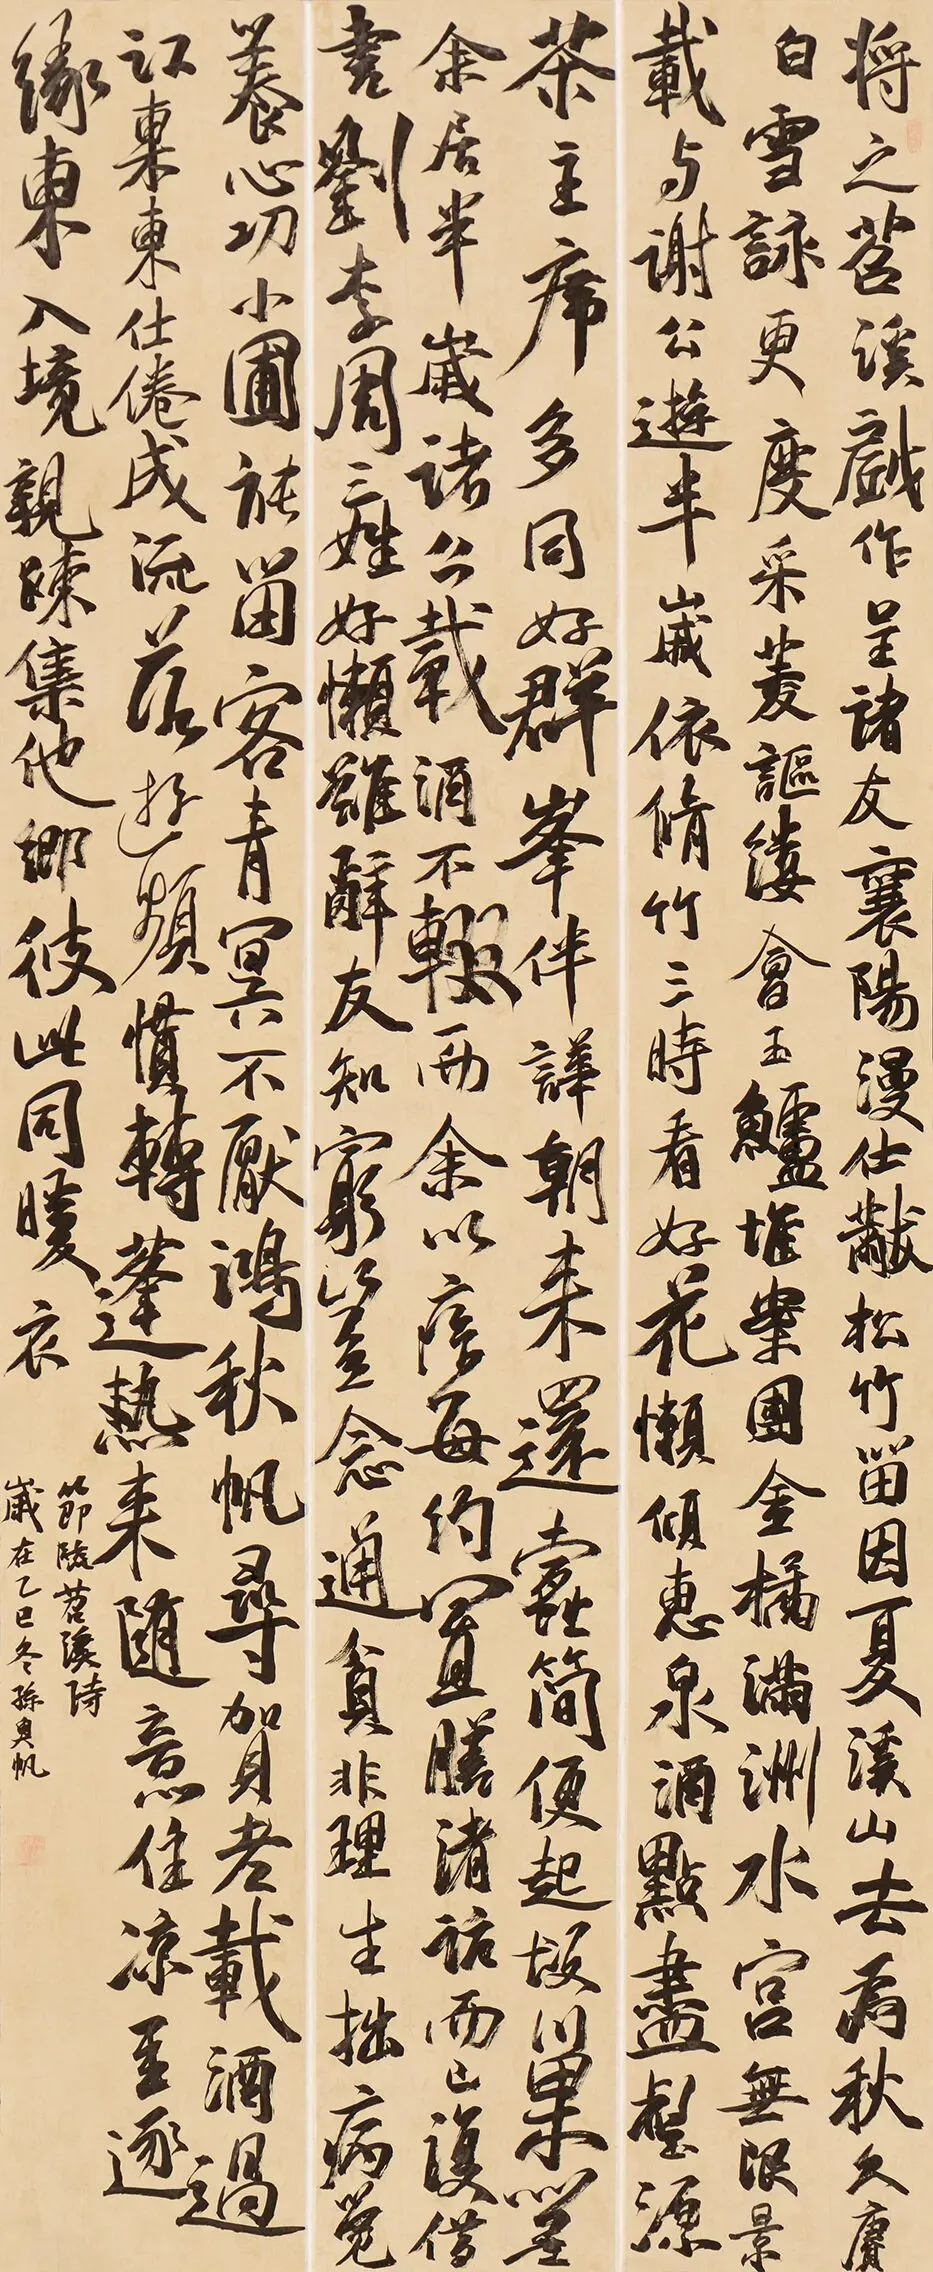 将之苕溪戲作呈諸友襄陽漫仕黻松竹留因夏溪山去為秋久賡
白雪詠更度采菱謳縷會玉鱸堆案團金橘滿洲水宫無限景
載与謝公遊半歲依脩竹三時看好花懶傾惠泉酒點盡壑源
茶主席多同好群峯伴譁朝来還蠹簡便起故巢嗟
余居半歲諸公載酒不輟而余以疾每約置膳清話而已復借
書劉李周三姓好懶難辭友知窮豈念通貧非理生拙病覺
養心功小圃能留客青冥不厭鴻秋帆尋賀老載酒過
江東東仕倦成流落遊頻慣轉蓬熱来随意住凉至逐
緣東入境親疎集他鄉彼此同暖衣
節臨苕溪詩
歲在乙巳冬孫帆